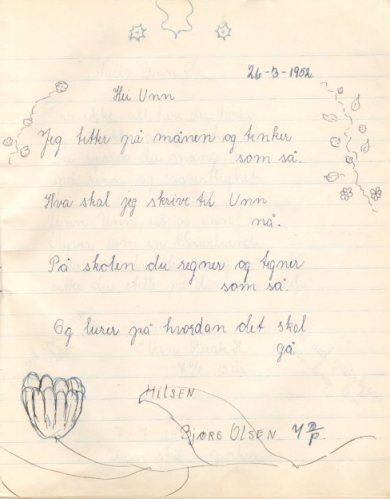 26-3-1952
Hei Unn
Jeg titter på månen og tenker
som så.
Hva skal jeg skrive til Unn
nå.
På skolen du regner og tegner
som så
Og lurer på hvordan det skal
gå
Hilsen
Bjørg Olsen